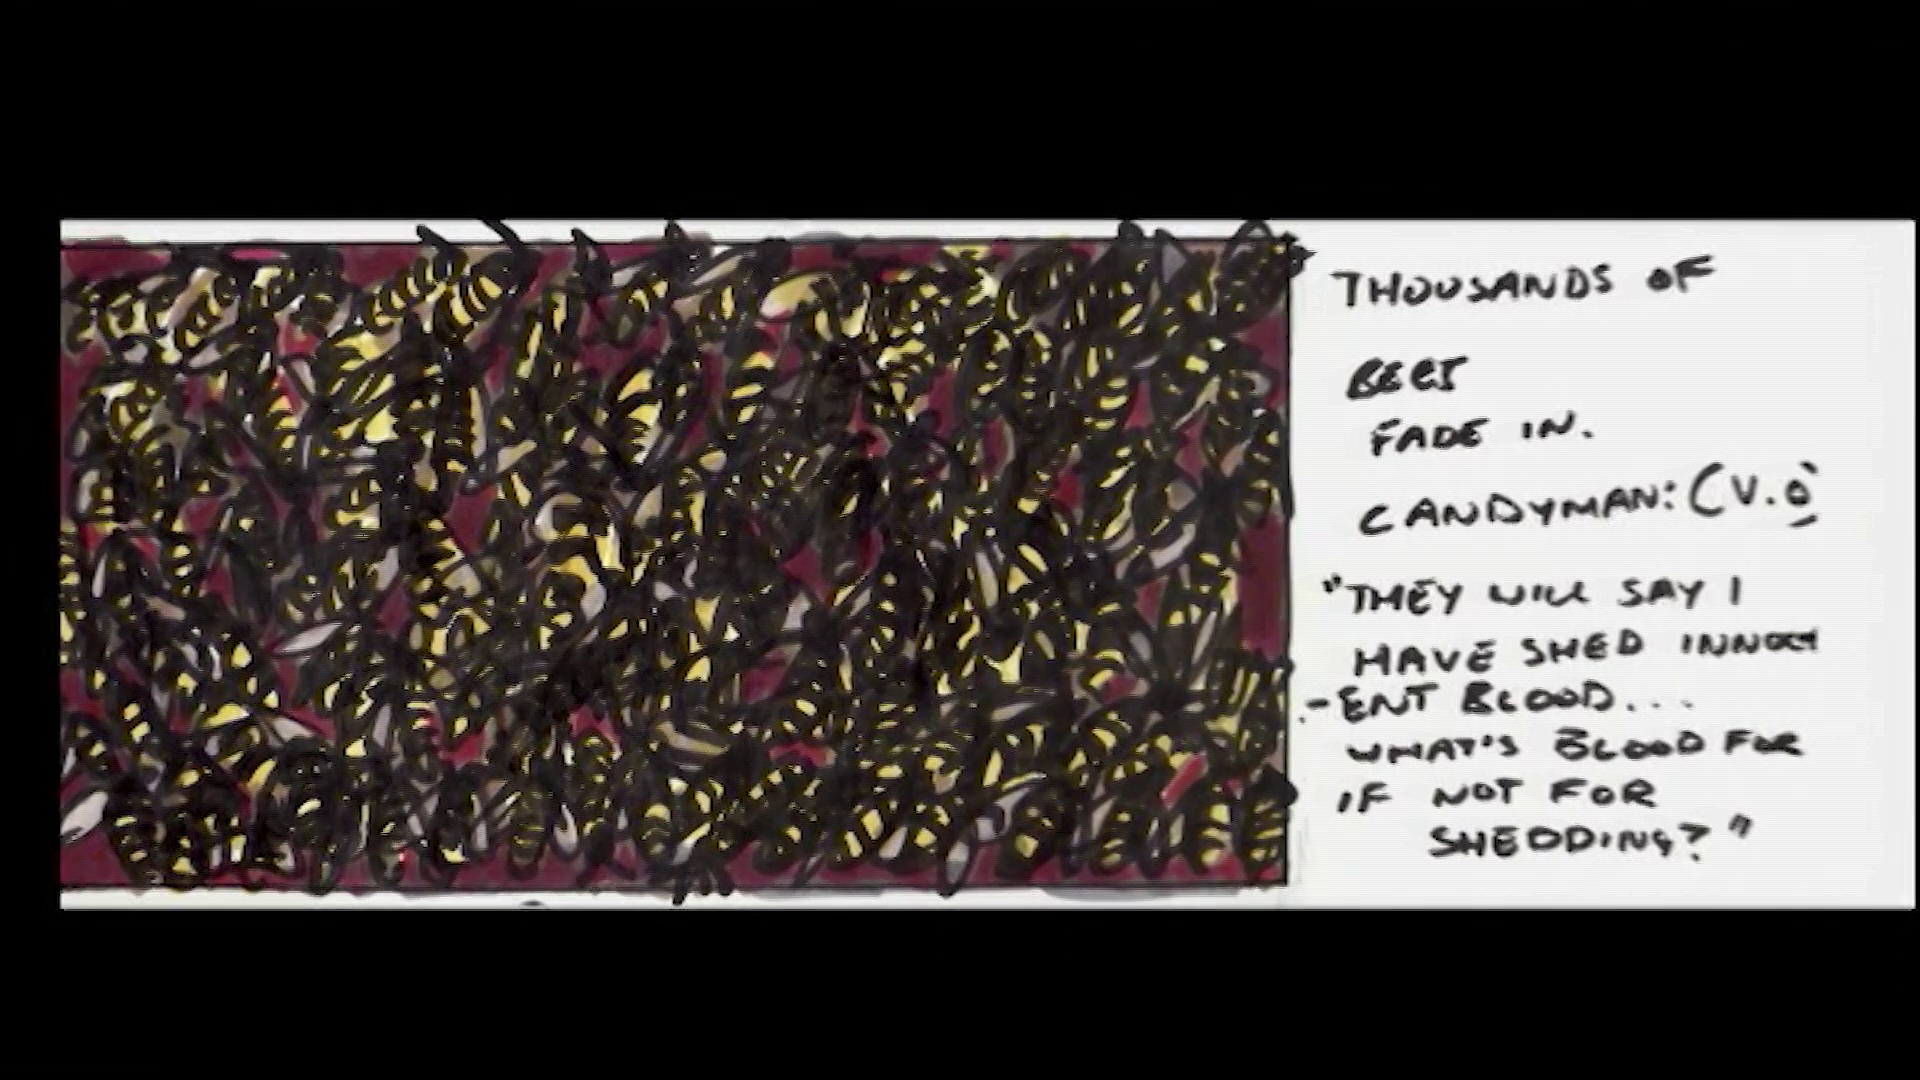 THOUSANDS OF
BEES
FADE IN.
CANDYMAN: (V.O
"THEY WILL SAY I
HAVE SHED INNOC
-ENT BLOOD...
WHAT'S BLOOD FOR
IF NOT FOR
SHEDDING?"